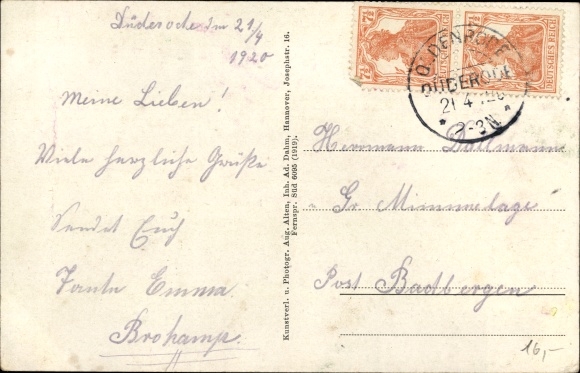 Düderode den 21/4
1920
Meine Lieben!
Viele herzliche Grüße
Sendet Euch
Tante Emma
Brokamp.
Kunstverl. u. Photogr. Aug. Alten, Inh. Ad. Dahm, Hannover, Josephstr. 16.
Fernspr. Süd 6095 (1919).
7½
7½
DEUTSCHES REICH
DÜDERODE
21.4.
2-3N.
Herrmann
Gr Mimmelage
Post Badbergen
16,-